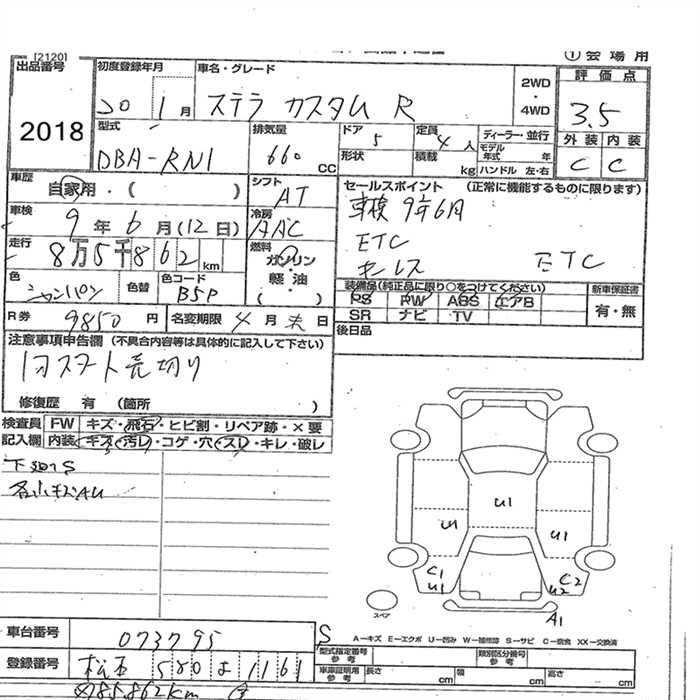 [2120]
① 会場用
出品番号
2018
初度登録年月
20 1月
車名・グレード
ステラ カスタム R
2WD
・
4WD
評価点
3.5
外装 内装
C C
型式
DBA-RN1
排気量
660 CC
ドア 5
定員 4人
形状
積載 kg
ディーラー・並行
モデル
年式 年
ハンドル 左・右
車歴
自家用・( )
シフト
AT
セールスポイント (正常に機能するものに限ります)
車検 9年6月
ETC
キーレス
ETC
車検
9年6月(12日)
冷房
AAC
走行
8万5千862km
燃料
ガソリン
・
軽油
( )
色
シャンパン
色替
色コード
B5P
装備品(純正品に限り○をつけてください)
PS PW ABS エアB
SR ナビ TV
新車保証書
有・無
R券 9850円
名変期限 4月末日
後日品
注意事項申告欄 (不具合内容等は具体的に記入して下さい)
1回スタート売切り
修復歴 有 (箇所 )
検査員 FW キズ・飛石・ヒビ割・リペア跡・×要
記入欄 内装 キズ・汚レ・コゲ・穴・スレ・キレ・破レ
下廻りS
各小キズAU
U1
U1
U1
C1
U1
C2
U2
A1
スペア
S
A-キズ E-エクボ U-凹み W-補修跡 S-サビ C-腐食 XX-交換済
車台番号 073795
登録番号 580 よ 1161
型式指定番号
参考
類別区分番号
参考
車庫証明用
参考
長さ cm 幅 cm 高さ cm
85,862km